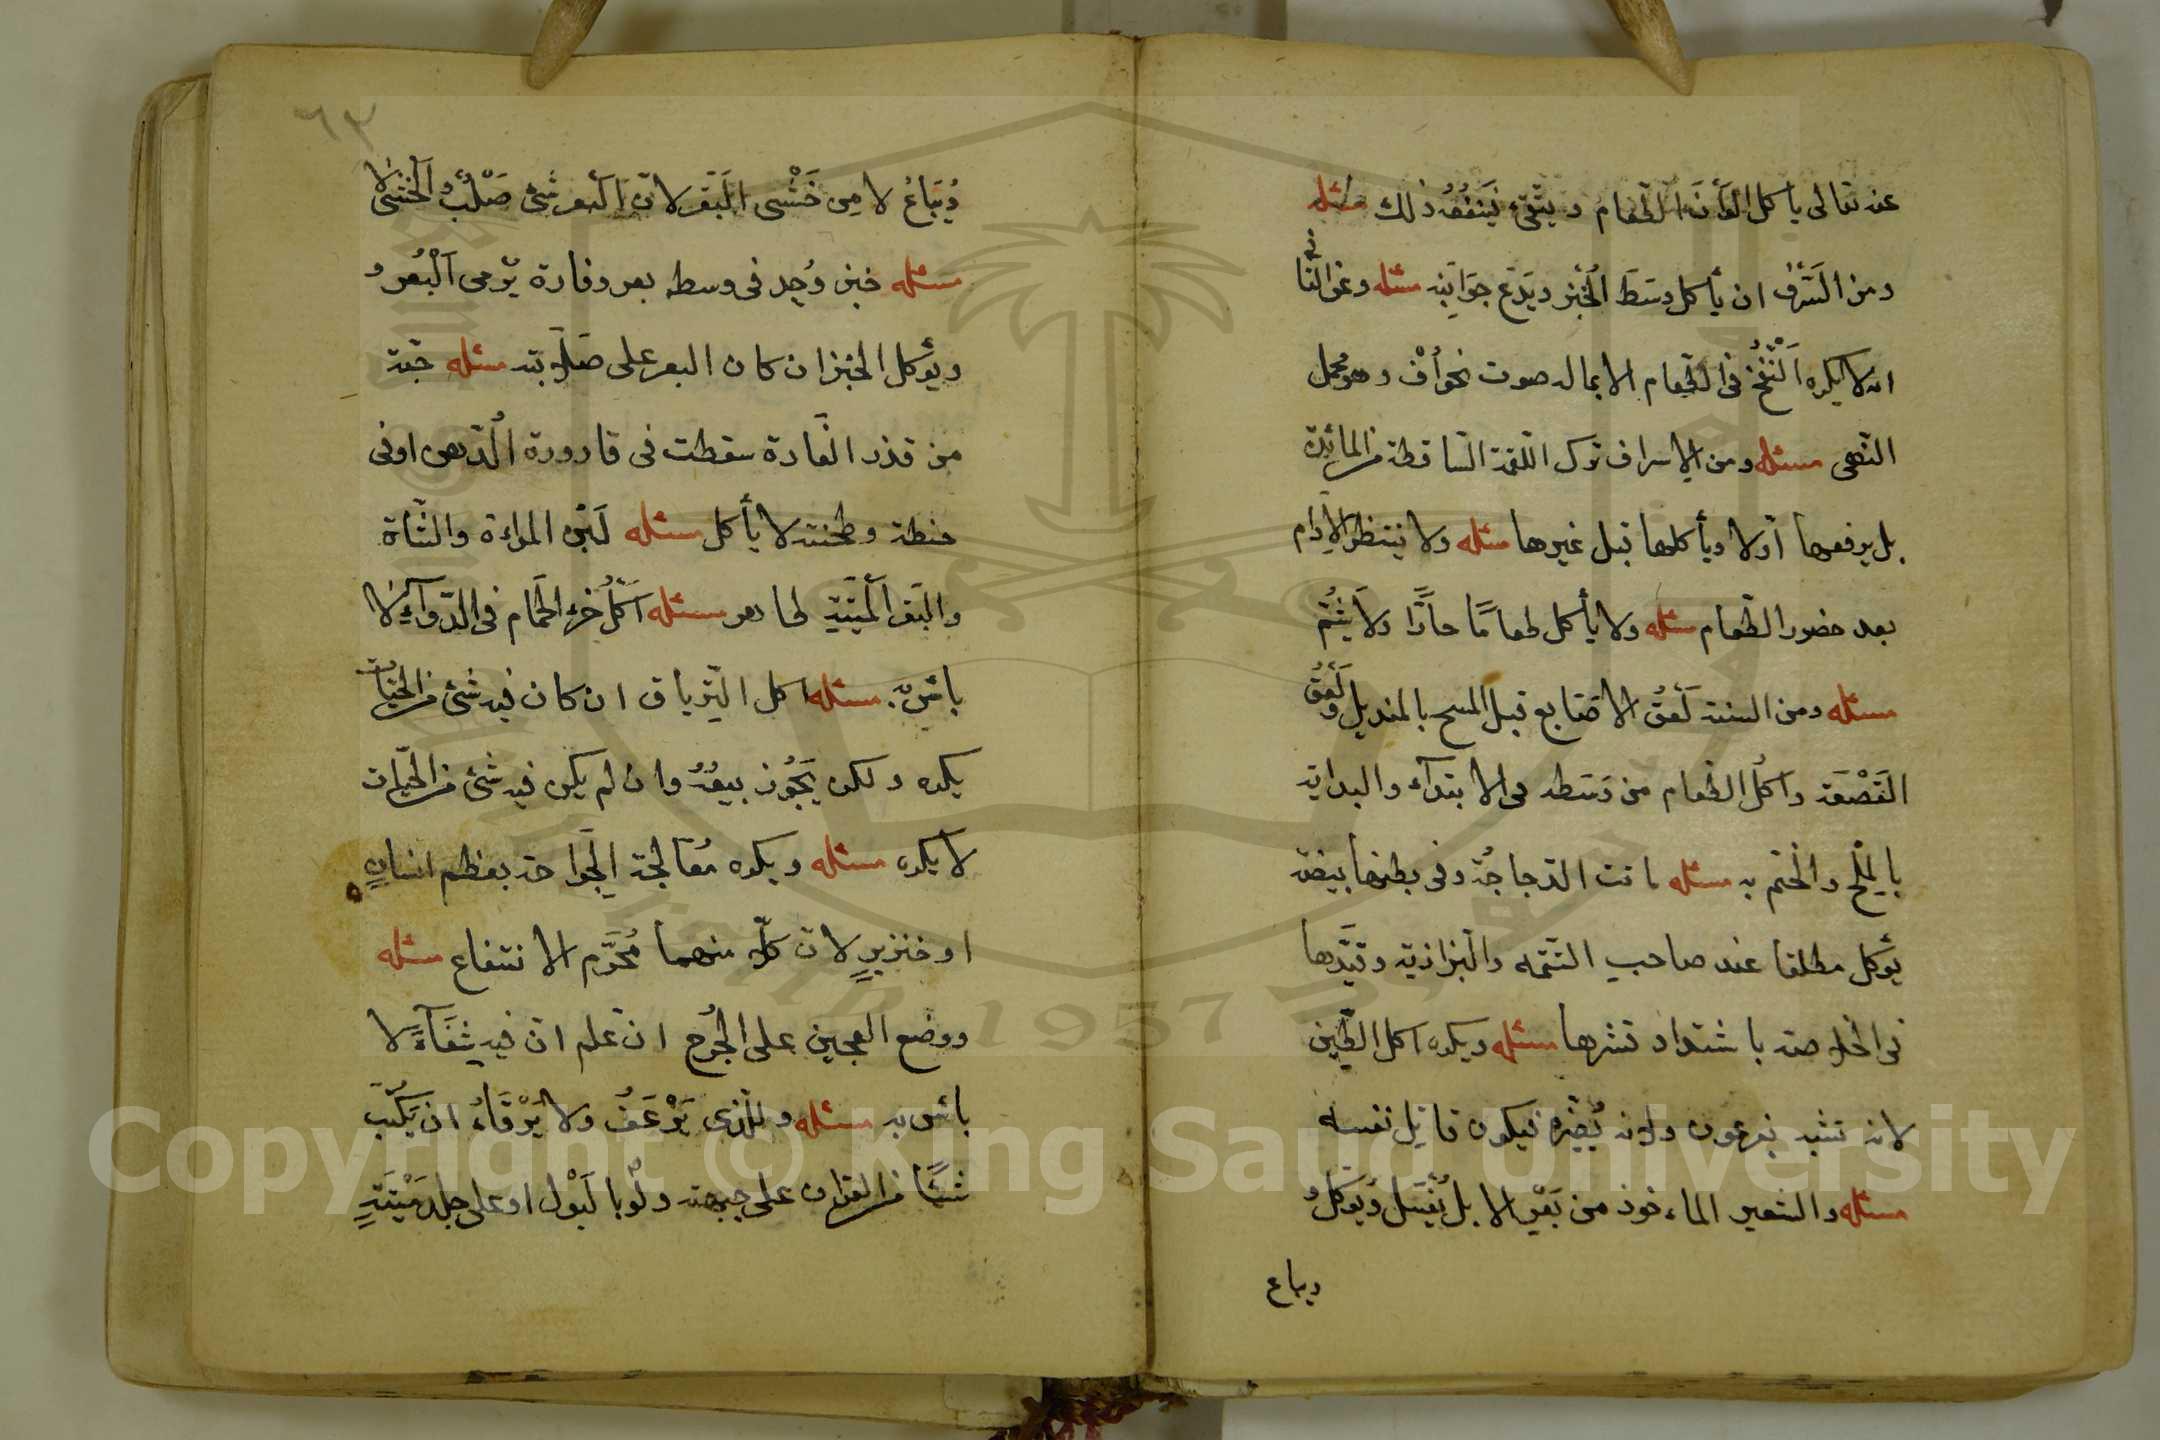 عنه تعالى يأكل الوأن الطعام ويتقيء ينفعه ذلك مسئله
ومن السرف ان يأكل وسط الخبز ويدع جوانبه مسئله وعن الثاني
انه لا يكره النفخ في الطعام الا بما له صوت نحو أف وهو محمل
النهى مسئله ومن الاسراف ترك اللقمة الساقطة من المائدة
بل يرفعها اولا ويأكلها قبل غيرها مسئله ولا ينتظر الادام
بعد حضور الطعام مسئله ولا يأكل طعاما حارا ولا يشم
مسئله ومن السنة لعق الاصابع قبل المسح بالمنديل ولعق
القصعة واكل الطعام من وسطه في الابتدآء والبداية
بالملح والختم به مسئله ماتت الدجاجة وفي بطنها بيضة
يؤكل مطلقا عند صاحب التتمه والبزازية وقيدها
في الخلاصة باشتداد قشرها مسئله ويكره اكل الطين
لانه تشبه بفرعون ولانه يضره فيكون قاتل نفسه
مسئله والشعير المأخوذ من بعر الابل يغسل ويؤكل
ويباع
٦٣
ويباع لا من خثى البقر لان البعر شئ صلب والخثى لا
مسئله خبز وجد في وسطه بعر وفارة يرمى البعر و
ويؤكل الخبز ان كان البعر على صلابته مسئله حبة
من قذر الفارة سقطت في قارورة الدهن او في
حنطة وطحنته لا يأكل مسئله لبن المراءة والشاة
والبقر الميتة طاهر مسئله اكل خرء الحمام في الدوآء لا
باس به مسئله اكل الترياق ان كان فيه شئ من الحيات
يكره ولكن يجوز بيعه وان لم يكن فيه شئ من الحيات
لا يكره مسئله ويكره معالجة الجراحة بعظم انسان
او خنزير لان كلا منهما محرم الانتفاع مسئله
ووضع العجين على الجرح ان علم ان فيه شفآء لا
باس به مسئله وللذى يرعف ولا يرقاء ان يكتب
شيئا من القران على جبهته ولو بالبول او على جلد ميتة
Copyright © King Saud University
1957